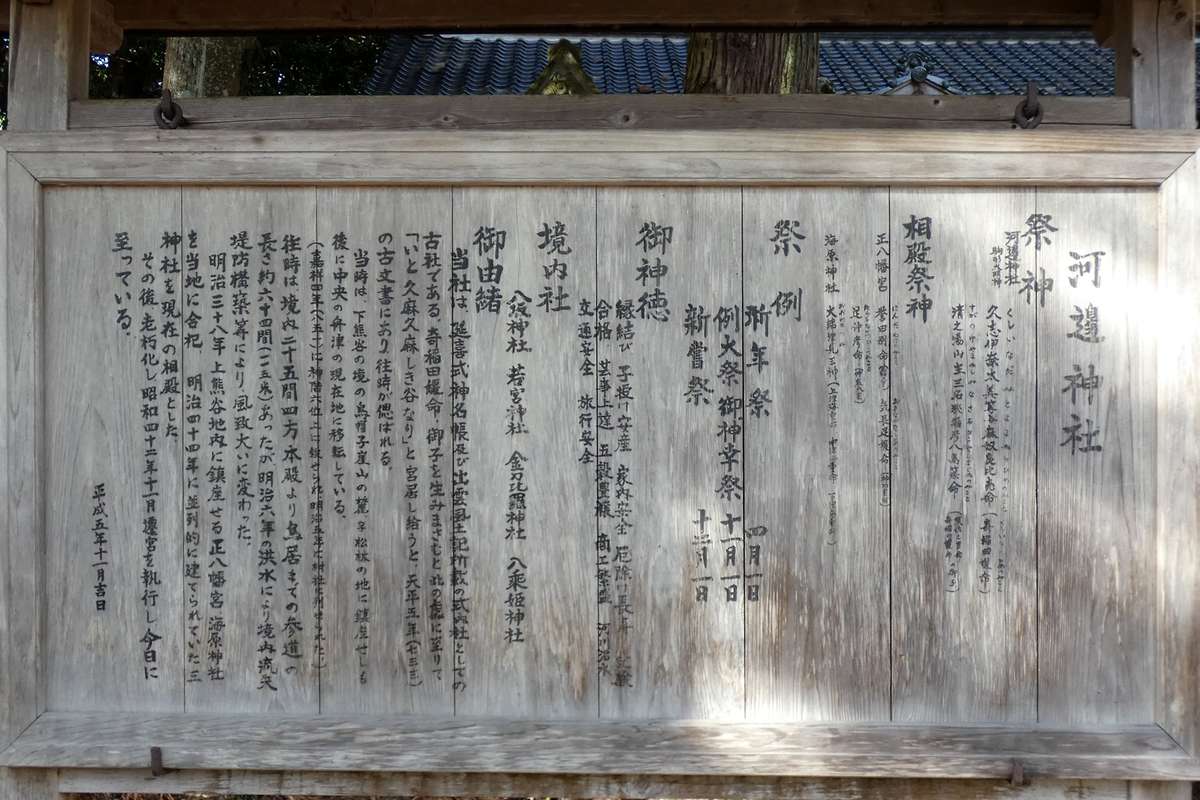 河邊神社
祭神
河邊神社
久志伊奈太美等与麻奴良比売命(奇稲田媛命)
清之湯山主三名狭漏彦八島篠命
相殿祭神
正八幡宮
誉田別命
気長足媛命
海原神社
祭例
祈年祭 四月一日
例大祭御神幸祭 十一月一日
新嘗祭
御神徳
縁結び 子授け安産 家内安全 厄除け長寿
合格 芸事上達 五穀豊穣 商工繁盛 河川治水
交通安全 旅行安全
境内社
八坂神社 若宮神社 金刀比羅神社 八乘姫神社
御由緒
当社は、延喜式神名帳及び出雲風土記所載の式内社としての
古社である。奇稲田媛命、御子を生みまさむと
「いと久麻久麻しき谷なり」と宮居し給うと、天平五年(七三三)
の古文書にあり、往時が偲ばれる。
当時は、下熊谷の境の烏帽子崖山の麓、子松林の地に鎮座せしも
後に中央の舟津の現在地に移転している。
(嘉祥四年(八五一)に神階六位上に叙せられ、明治五年に村社に列せられた。)
往時は、境内二十五間四方、本殿より鳥居までの参道の
長さ約六十四間(一一五米)あったが、明治六年の洪水により境内流失
堤防構築等により風致大いに変わった。
明治三十八年上熊谷地内に鎮座せる正八幡宮、海原神社
を当地に合祀、明治四十四年に並列的に建てられていた三
神社を現在の相殿とした。
その後、老朽化し昭和四十二年十一月遷宮を執行し今日に
至っている。
平成五年十一月吉日